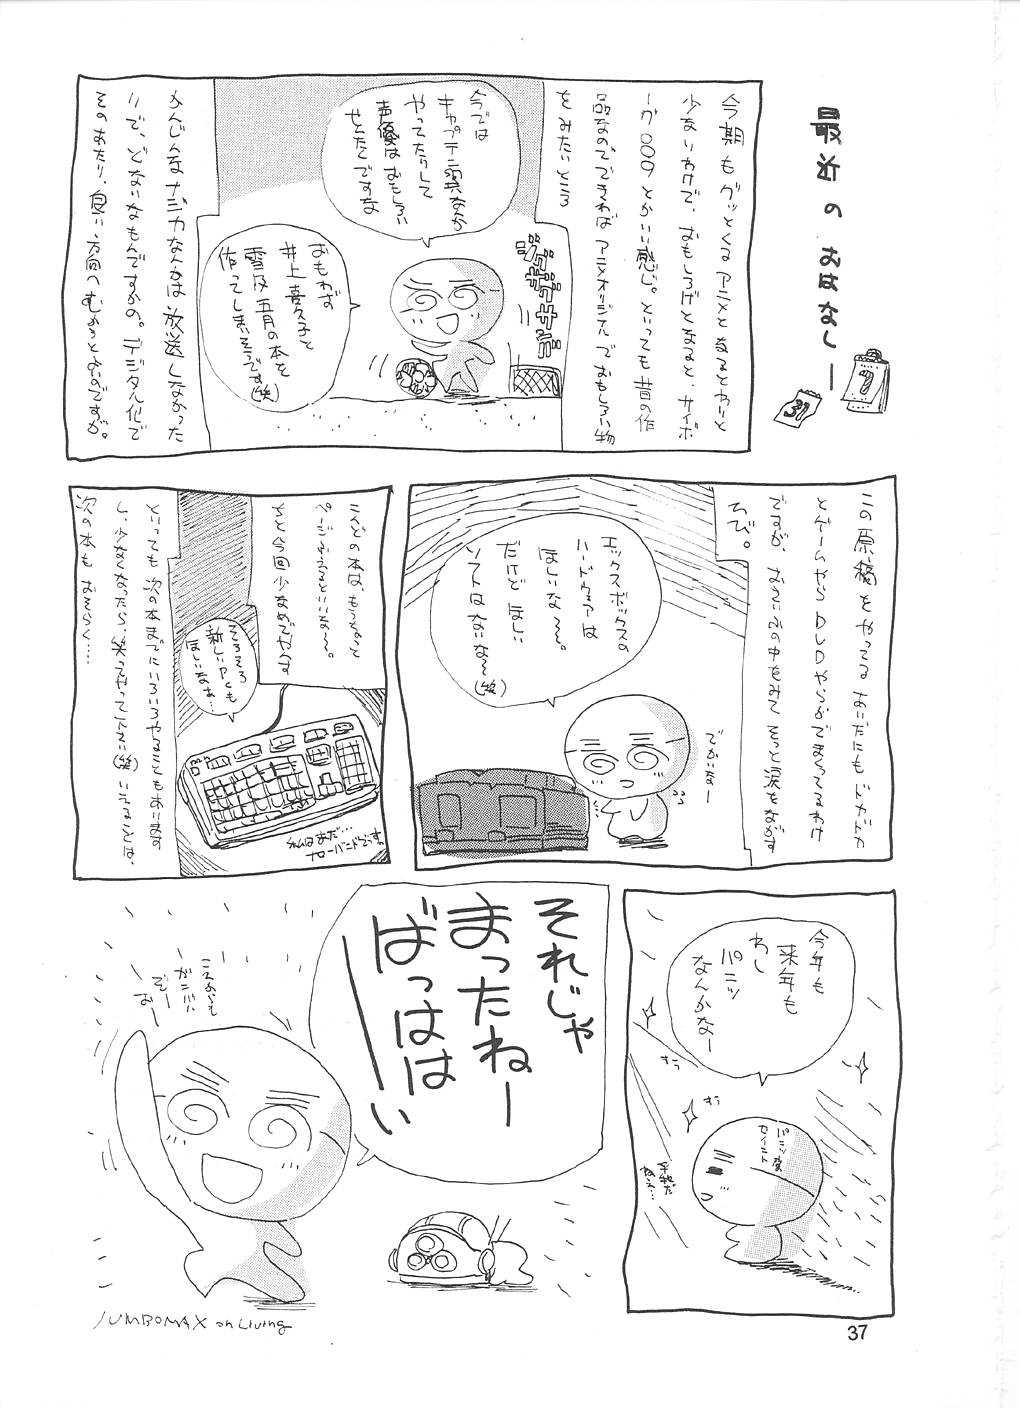 最近のおはなしー
7
31
今期もグッとくるアニメとなるとわりと
少ないわけで、おもしろげとなると、サイボ
ーグ009とかいい感じ。といっても昔の作
品なので、できればアニメオリジナルでおもしろい物
をみたいところ
今では
キャプテン翼なんか
やってたりして
声優はおもしろい
せんたくですな
おもわず
井上喜久子と
雪乃五月の本を
作ってしまいそうです(笑)
かんじんなナジカなんかは放送しなかった
りで、どないなもんですかの。デジタル化で
そのあたり、良い方向へむかうとよいのですが。
この原稿をやってるあいだにもドカドカ
とゲームやらDVDやらがでまくってるわけ
ですが、おさいふの中をみてそっと涙をながす
ちび。
エックスボックスの
ハードウェアは
ほしいな〜〜。
だけどほしい
ソフトはないな〜(笑)
でかいなー
こんどの本は、もうちょっと
ページがふえるといいな〜。
ちと今回少なめでやんす
そろそろ
新しいPCも
ほしいなぁ…
私はまだ…
ナローバンドでっす。
といっても次の本までにいろいろやることもあります
し、少なくなったら、笑ってやって下さい(笑)いえることは、
次の本もおそらく……
今年も
来年も
わし
パンツ
なんかなー
すぅ
すぅ
パンツ変
セイント
平和だ
ねぇ…
それじゃ
まったねー
ばっはは
ーい
これからも
ガンバル
ぞー
おー
JUMBOMAX on Living
37